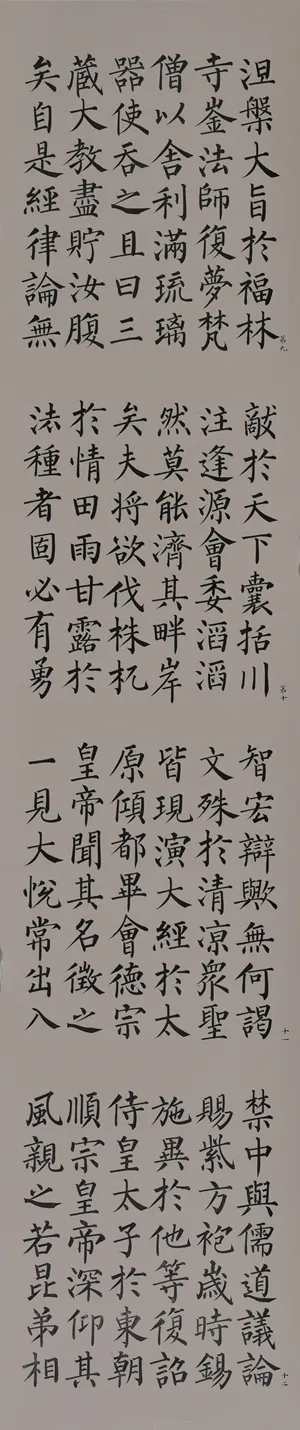 涅槃大旨於福林
第九
寺崟法師復夢梵
僧以舍利滿琉璃
器使吞之且曰三
藏大教盡貯汝腹
矣自是經律論無
敵於天下囊括川
第十
注逢源會委滔滔
然莫能濟其畔岸
矣夫將欲伐株杌
於情田雨甘露於
法種者固必有勇
智宏辯歟無何謁
十一
文殊於清凉衆聖
皆現演大經於太
原傾都畢會德宗
皇帝聞其名徵之
一見大悅常出入
禁中與儒道議論
十二
賜紫方袍歲時錫
施異於他等復詔
侍皇太子於東朝
順宗皇帝深仰其
風親之若昆弟相